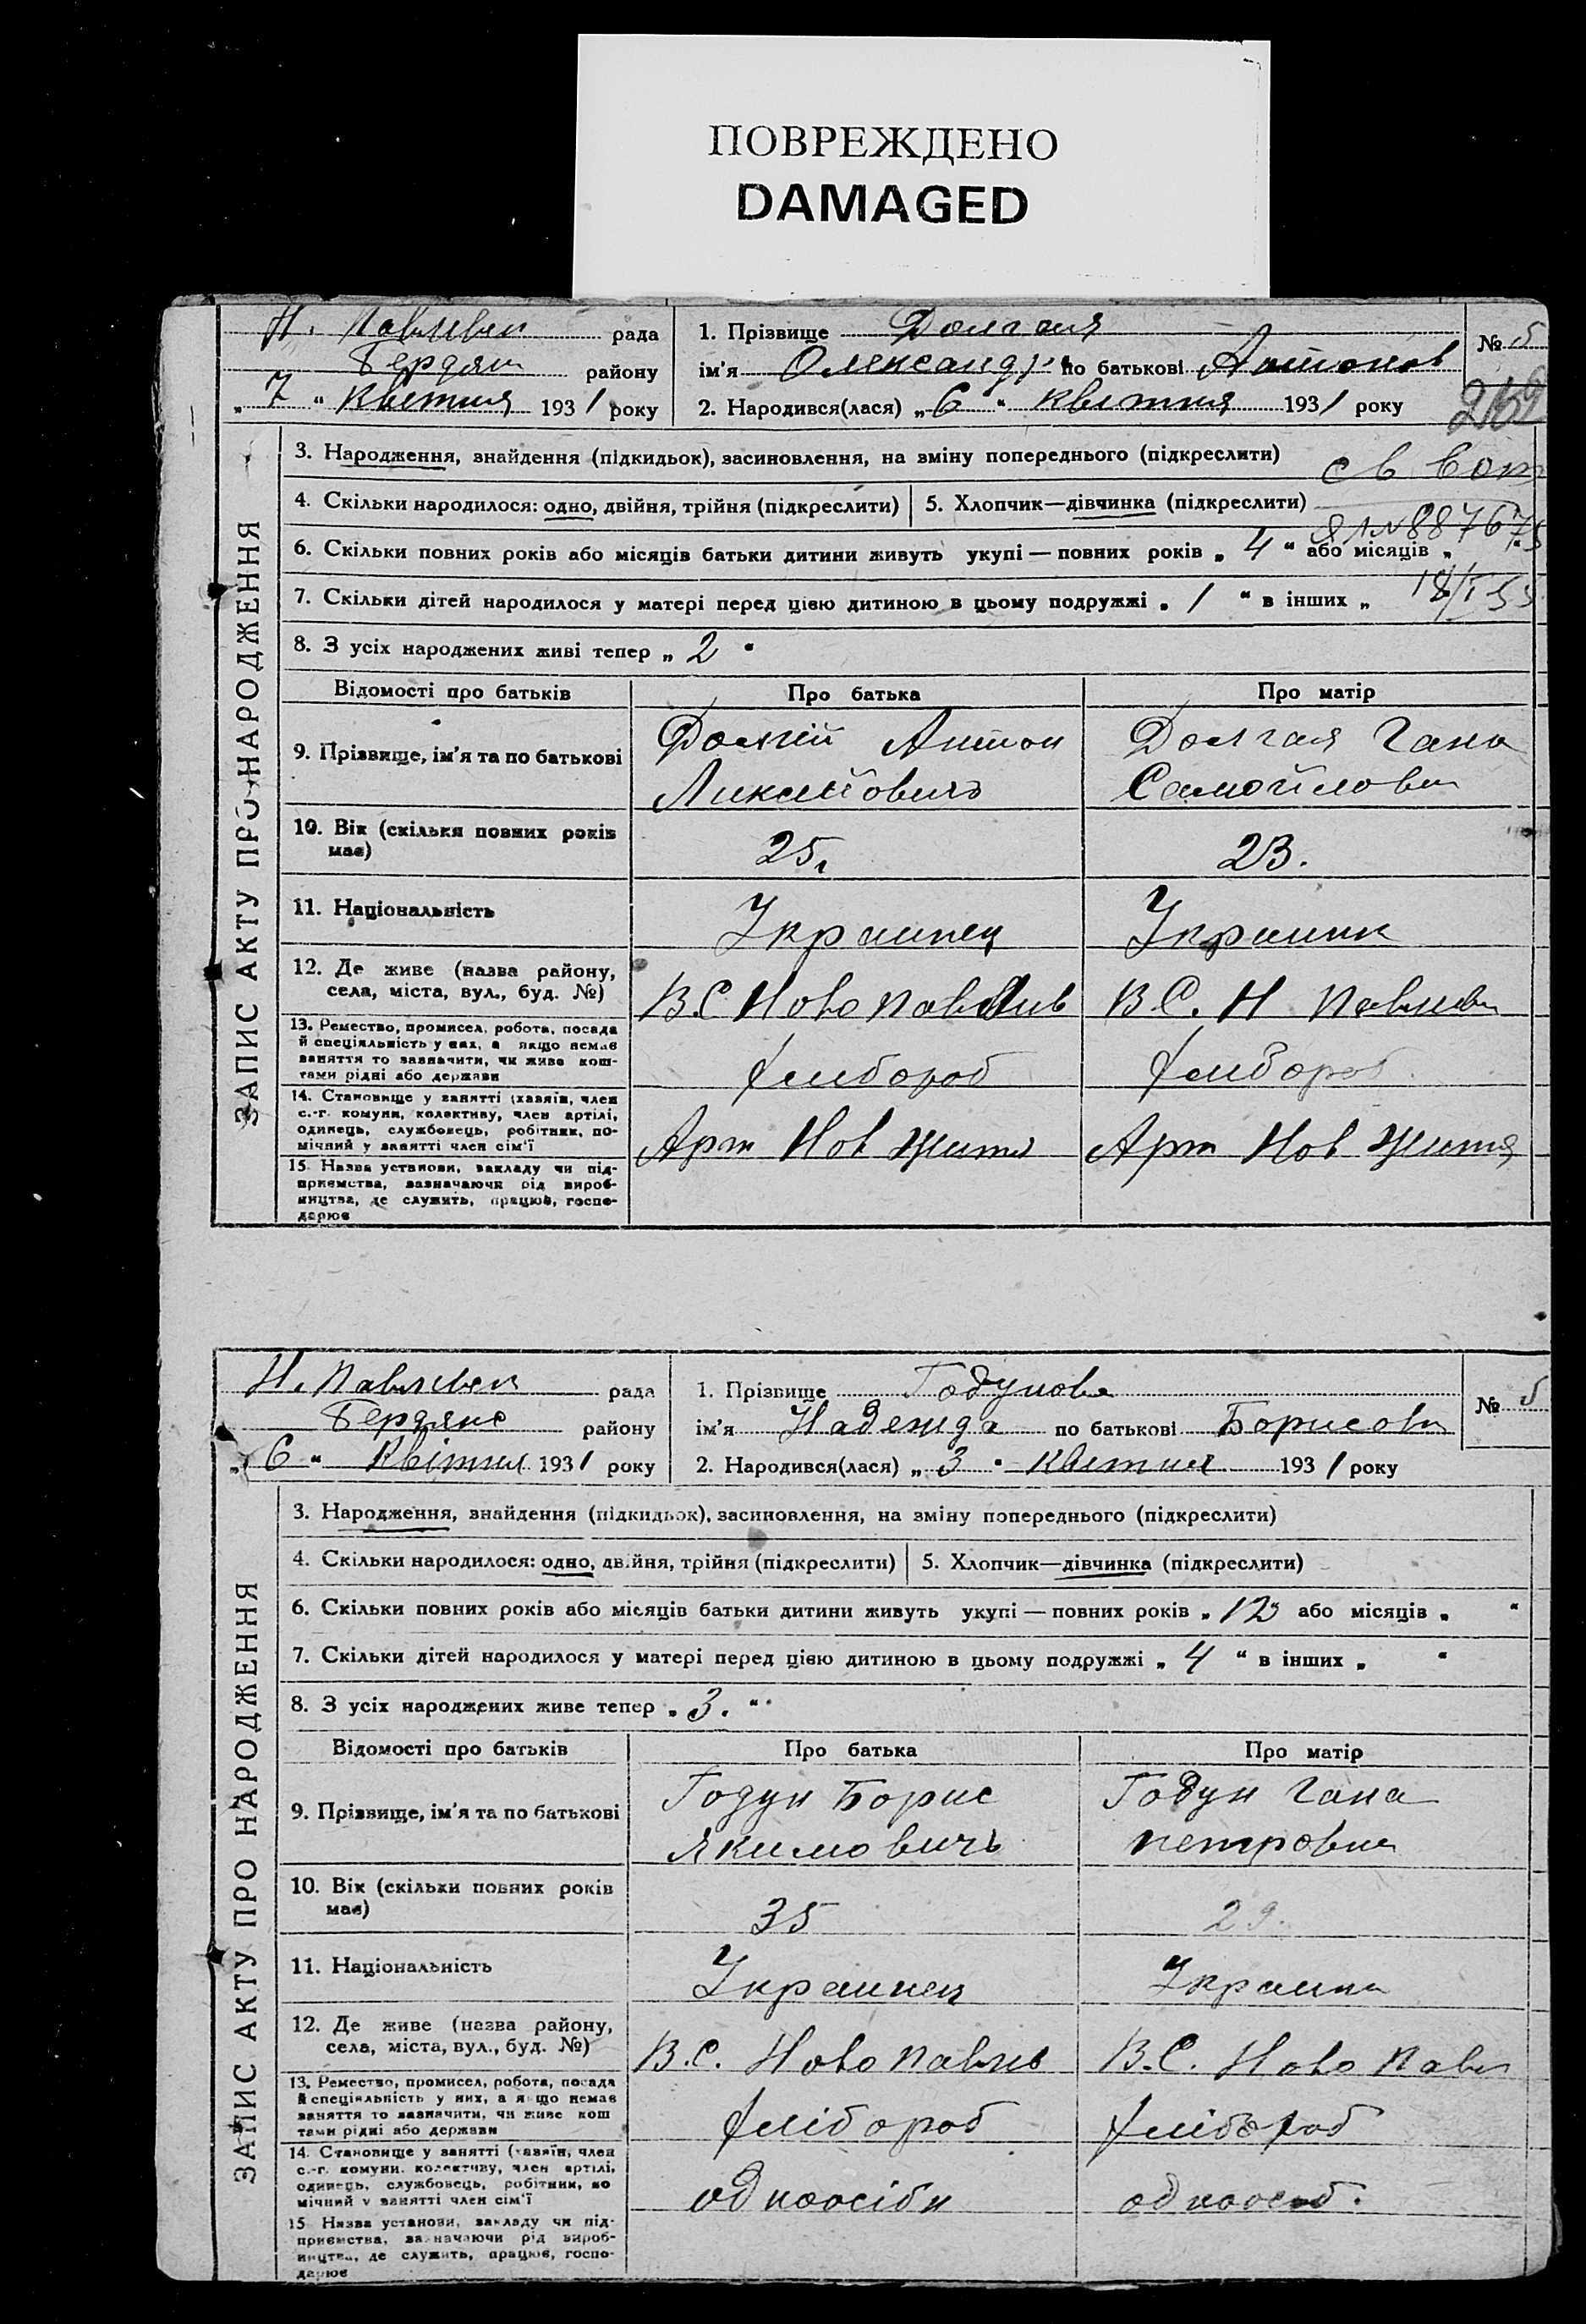 ПОВРЕЖДЕНО
DAMAGED
Н. Павлівськ рада
Бердян району
„ 7 “ Квітня 1931 року
1. Прізвище Долгая
ім'я Олександра по батькові Антонов
2. Народився(лася) „ 6 “ квітня 1931 року
№ 5
3. Народження, знайдення (підкидьок), засиновлення, на зміну попереднього (підкреслити)
4. Скільки народилося: одно, двійня, трійня (підкреслити)
5. Хлопчик—дівчинка (підкреслити)
ЯЛ№887675
6. Скільки повних років або місяців батьки дитини живуть укупі — повних років „ 4 “ або місяців „ “
7. Скільки дітей народилося у матері перед цією дитиною в цьому подружжі „ 1 “ в інших „
8. З усіх народжених живі тепер „ 2 “
ЗАПИС АКТУ ПРО НАРОДЖЕННЯ
Відомості про батьків
Про батька
Про матір
9. Прізвище, ім'я та по батькові
Долгий Антон
Долгая Гана
Самойловн
10. Вік (скільки повних років
має)
25.
23.
11. Національність
Украинец
Украинк
12. Де живе (назва району,
села, міста, вул., буд. №)
В.С Ново Павлив
В.С. Н Павливк
13. Ремество, промисел, робота, посада
й спеціяльність у них, а якщо немає
заняття то зазначити, чи живе кош-
тами рідні або держави
Хлибороб
Хлибороб
14. Становище у занятті (хазяїн, член
с.-г. комуни, колективу, член артілі,
одинець, службовець, робітник, по-
мічний у занятті член сім'ї
Арт Нов Життя
Арт Нов Життя
15. Назва установи, закладу чи під-
приємства, зазначаючи рід вироб-
ництва, де служить, працює, госпо-
дарює
Н. Павлівськ рада
Бердянс району
„ 6 “ Квітня 1931 року
1. Прізвище Годунова
ім'я Надежда по батькові Борисовн
2. Народився(лася) „ 3 “ Квітня 1931 року
№ 5
3. Народження, знайдення (підкидьок), засиновлення, на зміну попереднього (підкреслити)
4. Скільки народилося: одно, двійня, трійня (підкреслити)
5. Хлопчик—дівчинка (підкреслити)
6. Скільки повних років або місяців батьки дитини живуть укупі — повних років „ 12 “ або місяців „ “
7. Скільки дітей народилося у матері перед цією дитиною в цьому подружжі „ 4 “ в інших „ “
8. З усіх народжених живе тепер „ 3. “
ЗАПИС АКТУ ПРО НАРОДЖЕННЯ
Відомості про батьків
Про батька
Про матір
9. Прізвище, ім'я та по батькові
Годун Борис
Якимовичь
Годун Гана
петровна
10. Вік (скільки повних років
має)
35
29.
11. Національність
Украинец
Украинк
12. Де живе (назва району,
села, міста, вул., буд. №)
В.С. Ново Павлив
В.С. Ново Павл
13. Ремество, промисел, робота, посада
й спеціяльність у них, а якщо немає
заняття то зазначити, чи живе кош
тами рідні або держави
Хлібороб
Хлібороб
14. Становище у занятті (хазяїн, член
с.-г. комуни, колективу, член артілі,
одинець, службовець, робітник, по
мічний у занятті член сім'ї
одноосібн
одноосіб.
15 Назва установи, закладу чи під-
приємства, зазначаючи рід вироб-
ництва, де служить, працює, госпо-
дарює